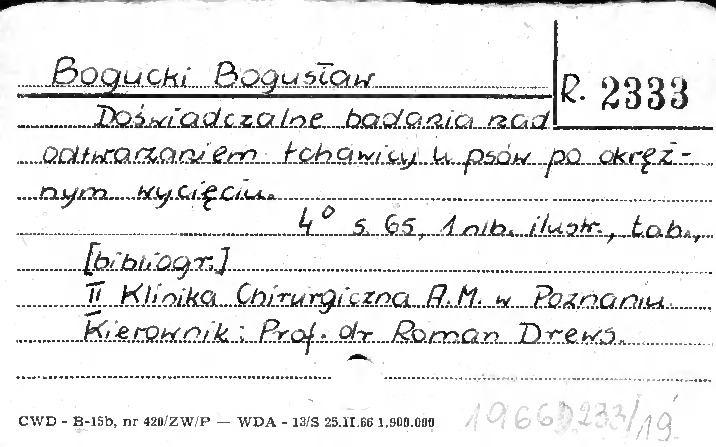 Bogucki Bogusław
R. 2333
Doświadczalne badania nad
odtwarzaniem tchawicy u psów po okręż-
nym wycięciu.
4° s. 65, 1 nlb. ilustr., tab.,
[bibliogr.]
II Klinika Chirurgiczna A.M. w Poznaniu
Kierownik: Prof. dr Roman Drews.
CWD - B-15b, nr 420/ZW/P — WDA - 13/S 25.II.66 1.900.000
1966 D 233/19